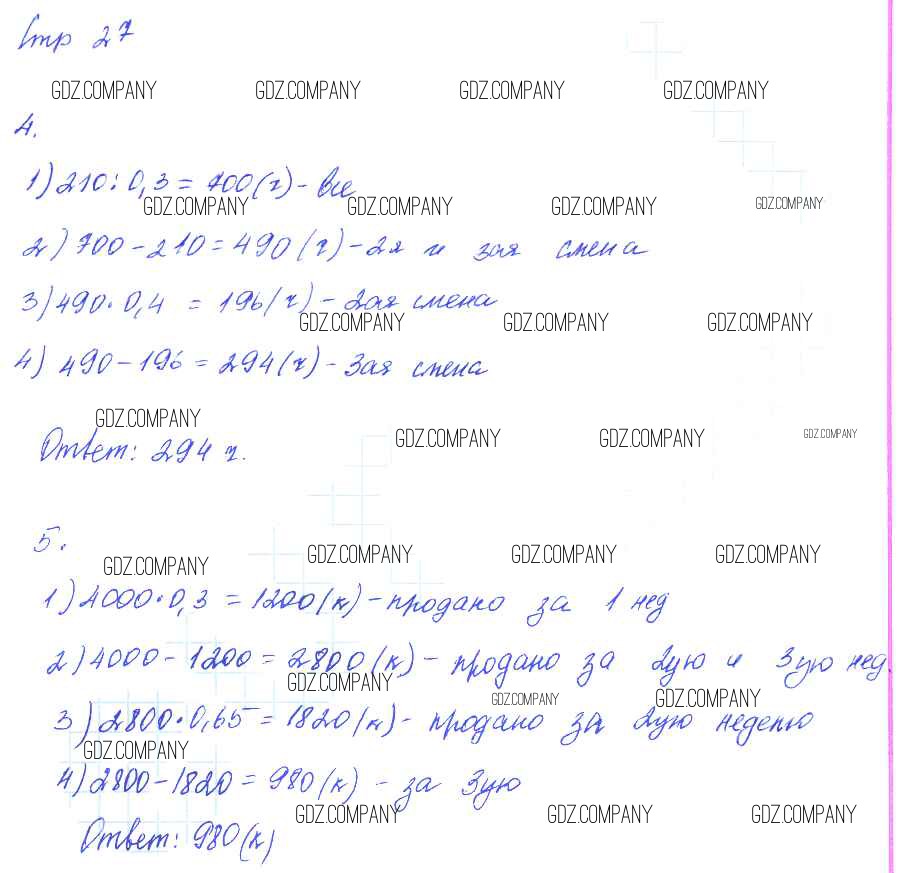 Стр 27
GDZ.COMPANY GDZ.COMPANY GDZ.COMPANY GDZ.COMPANY
4.
1) 210 : 0,3 = 700 (г) - все
GDZ.COMPANY GDZ.COMPANY GDZ.COMPANY GDZ.COMPANY
2) 700 - 210 = 490 (г) - 2я и 3ая смена
3) 490 · 0,4 = 196 (г) - 2ая смена
GDZ.COMPANY GDZ.COMPANY GDZ.COMPANY
4) 490 - 196 = 294 (г) - 3ая смена
GDZ.COMPANY GDZ.COMPANY GDZ.COMPANY GDZ.COMPANY
Ответ: 294 г.
5.
GDZ.COMPANY GDZ.COMPANY GDZ.COMPANY GDZ.COMPANY
1) 4000 · 0,3 = 1200 (к) - продано за 1 нед
2) 4000 - 1200 = 2800 (к) - продано за 2ую и 3ую нед.
GDZ.COMPANY GDZ.COMPANY GDZ.COMPANY
3) 2800 · 0,65 = 1820 (к) - продано за 2ую неделю
GDZ.COMPANY
4) 2800 - 1820 = 980 (к) - за 3ую
GDZ.COMPANY GDZ.COMPANY GDZ.COMPANY
Ответ: 980 (к)